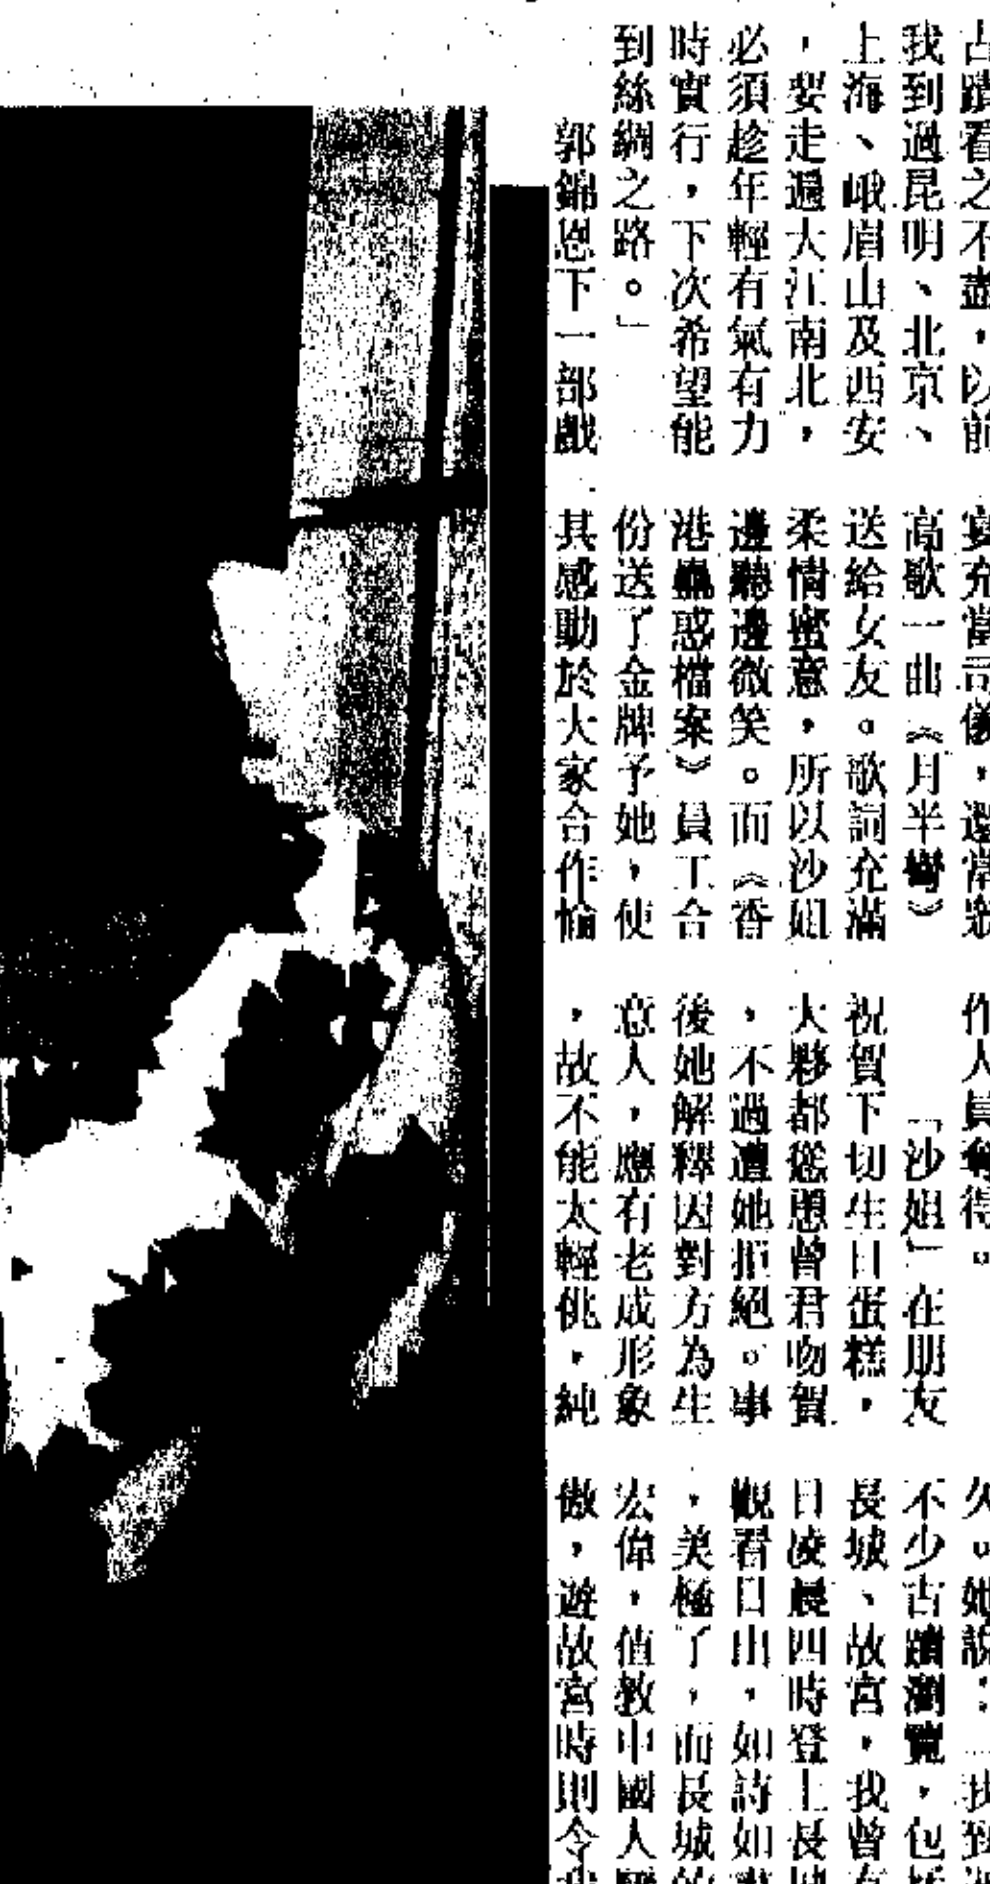 古蹟看之不盡，以前
我到過昆明、北京、
上海、峨眉山及西安
，要走遍大江南北，
必須趁年輕有氣有力
時實行，下次希望能
到絲綢之路。」
郭錦恩下一部戲
宴充當司儀，還當眾
高歌一曲《月半彎》
送給女友。歌詞充滿
柔情蜜意，所以沙姐
邊聽邊微笑。而《香
港蠱惑檔案》員工合
份送了金牌予她，使
其感動於大家合作愉
作人員奪得。
「沙姐」在朋友
祝賀下切生日蛋糕，
大夥都慫恿曾君吻賀
，不過遭她拒絕。事
後她解釋因對方為生
意人，應有老成形象
，故不能太輕佻，純
久。她說：「我到過
不少古蹟瀏覽，包括
長城、故宮，我曾在
日凌晨四時登上長城
觀看日出，如詩如畫
，美極了，而長城的
宏偉，值教中國人驕
傲，遊故宮時則令我